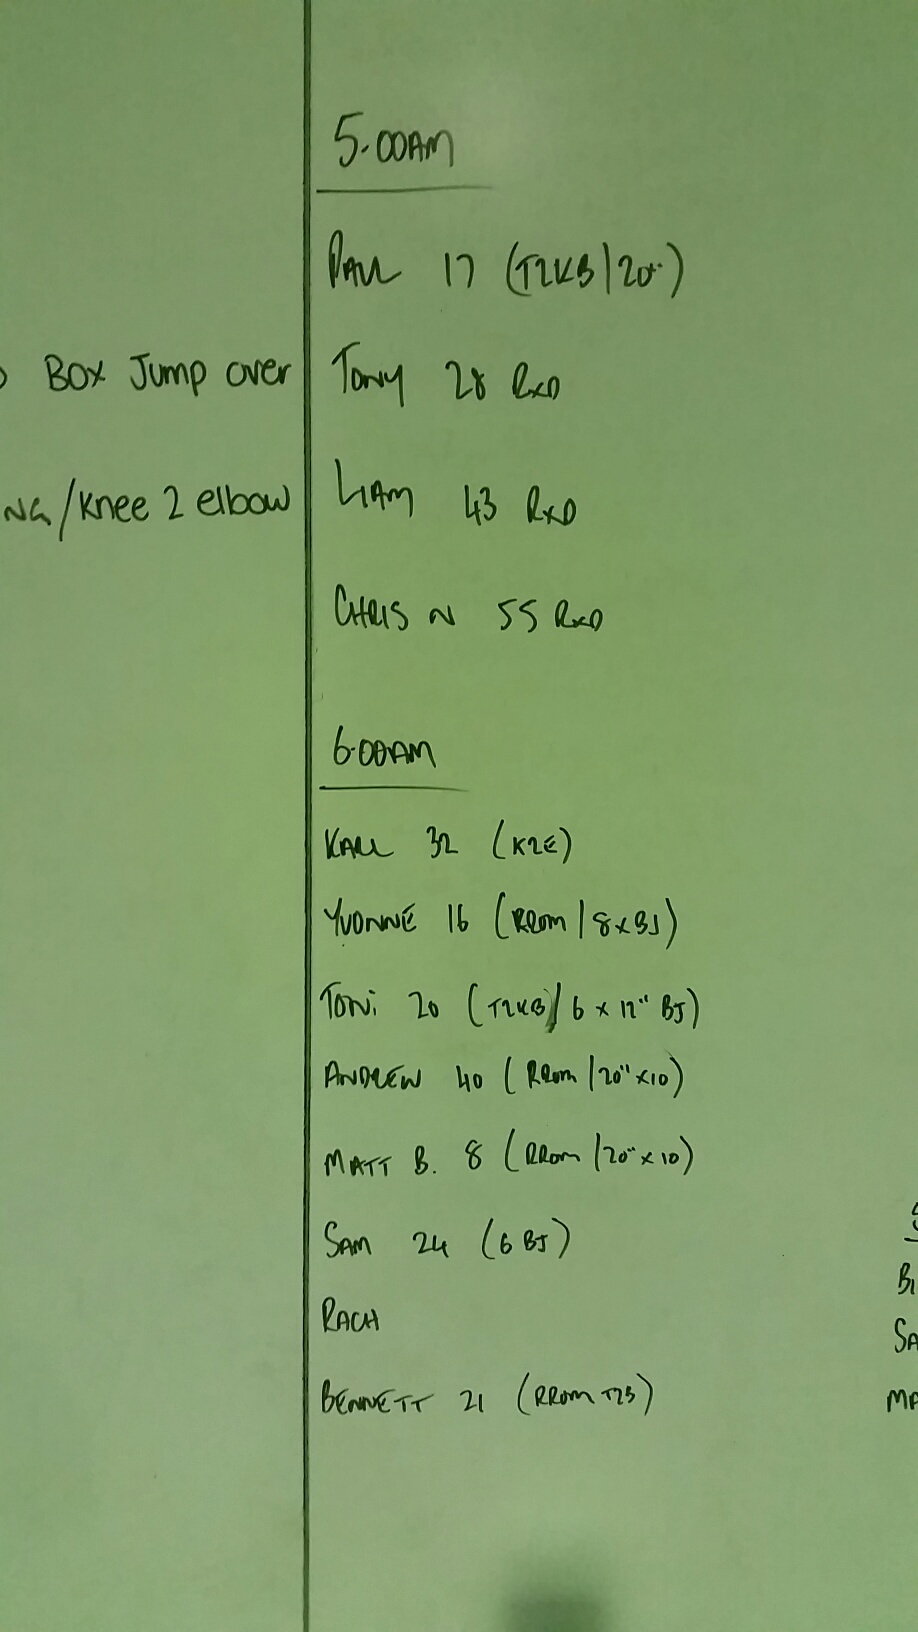 Box Jump over
/Knee 2 elbow
5.00AM
PAUL 17 (T2KB/20")
TONY 28 RXD
LIAM 43 RXD
CHRIS N 55 RXD
6.00AM
KALL 32 (K2E)
YVONNE 16 (RROM/8xBJ)
TONi 20 (T2KB/6 x 12" BJ)
ANDREW 40 (RROM/20"x10)
MATT B. 8 (RROM/20"x10)
SAM 24 (6 BJ)
RACH
BENNETT 21 (RROM T2B)
SA
MA